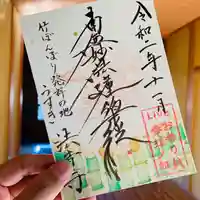 令和二年十一月
南無妙法蓮華経
竹ぼんぼり発祥の地
うすき
法音寺